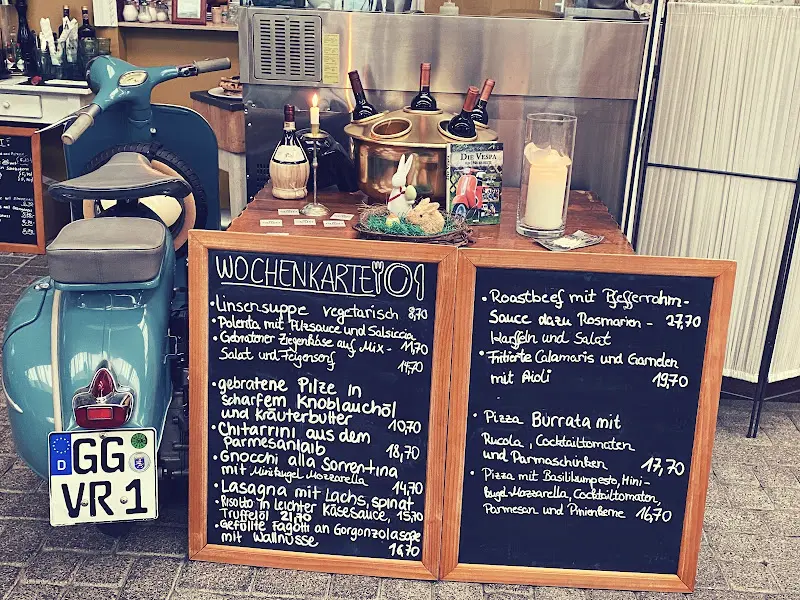 WOCHENKARTE
• Linsensuppe vegetarisch 8,70
• Polenta mit Pilzsauce und Salsiccia
• Gebratener Ziegenkäse auf Mix- 11,70
Salat und Feigensenf
14,70
• gebratene Pilze in
scharfem Knoblauchöl
und Kräuterbutter 10,70
• Chitarrini aus dem
Parmesanlaib 18,70
• Gnocchi alla Sorrentina
mit Minikugel Mozzarella 14,70
• Lasagna mit Lachs, spinat
• Risotto in leichter Käsesauce, 15,70
Trüffelöl 21,70
• Gefüllte Fagotti an Gorgonzolasoße
mit Wallnüsse 16,70
• Roastbeef mit Pfefferrahm-
Sauce dazu Rosmarien- 27,70
kartoffeln und Salat
• Fritierte Calamaris und Garnelen
mit Aioli 19,70
• Pizza Burrata mit
Rucola, Cocktailtomaten
und Parmaschinken 17,70
• Pizza mit Basilikumpesto, Mini-
kugel-Mozzarella, Cocktailtomaten,
Parmesan und Pinienkerne 16,70
DIE VESPA
D
GG
VR 1